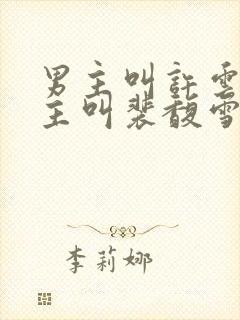 男主叫許雲
主叫裴馥雪
李莉娜